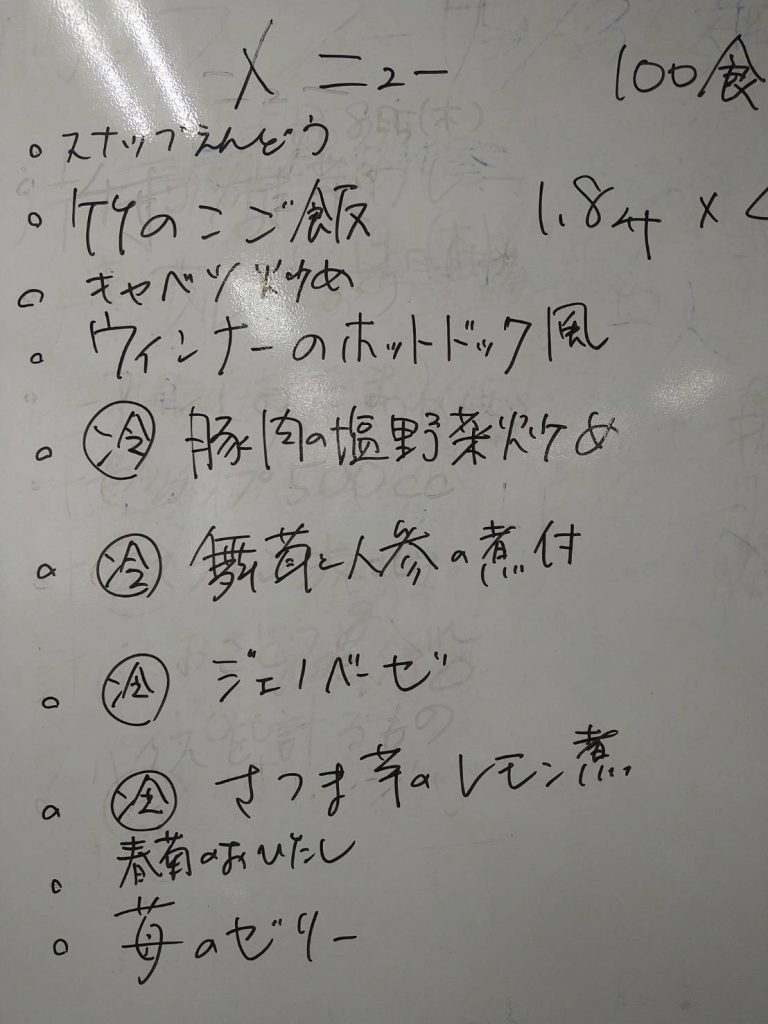 メニュー 100食
○スナップえんどう
○竹のこご飯 1.8升 ×
○キャベツ炒め
○ウィンナーのホットドック風
○㊗冷 豚肉の塩野菜炒め
○冷 舞茸と人参の煮付
○冷 ジェノベーゼ
○冷 さつま芋のレモン煮
○春菊のおひたし
○苺のゼリー